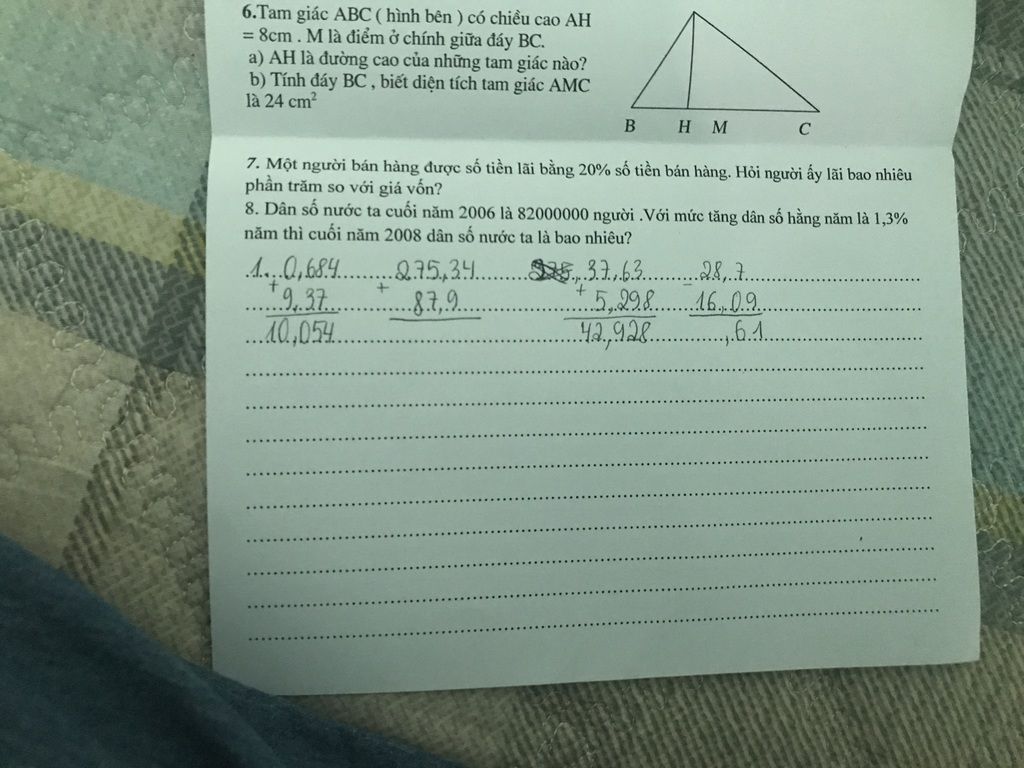 6.Tam giác ABC ( hình bên ) có chiều cao AH
= 8cm . M là điểm ở chính giữa đáy BC.
a) AH là đường cao của những tam giác nào?
b) Tính đáy BC , biết diện tích tam giác AMC
là 24 cm²
B H M C
7. Một người bán hàng được số tiền lãi bằng 20% số tiền bán hàng. Hỏi người ấy lãi bao nhiêu
phần trăm so với giá vốn?
8. Dân số nước ta cuối năm 2006 là 82000000 người .Với mức tăng dân số hằng năm là 1,3%
năm thì cuối năm 2008 dân số nước ta là bao nhiêu?
1. 0,684 275,34 37,63 28,7
+ 9,37 + 87,9 + 5,298 - 16,09
10,054 42,928 ,61